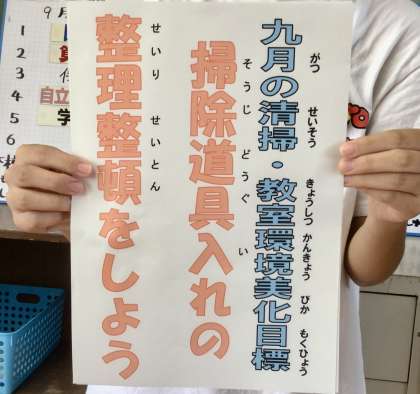 九月の清掃・教室環境美化目標
がつ せいそう きょうしつ かんきょう びか もくひょう
掃除道具入れの
そうじ どうぐ い
整理整頓をしよう
せいり せいとん
9月
1
2
3
4
5
6
自立
学